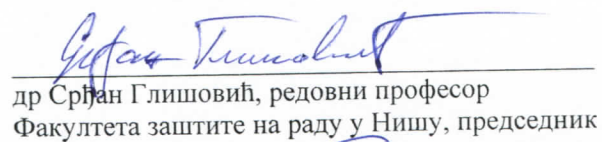 Срђан Глишовић
др Срђан Глишовић, редовни професор
Факултета заштите на раду у Нишу, председник